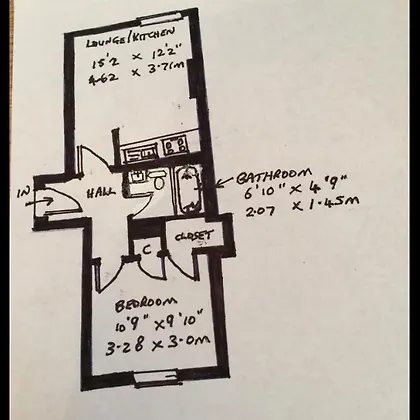 LOUNGE/KITCHEN
15'2 x 12'2"
4.62 x 3.71m
IN
HALL
BATHROOM
6'10" x 4'9"
2.07 x 1.45m
C
CLOSET
BEDROOM
10'9" x 9'10"
3.28 x 3.0m